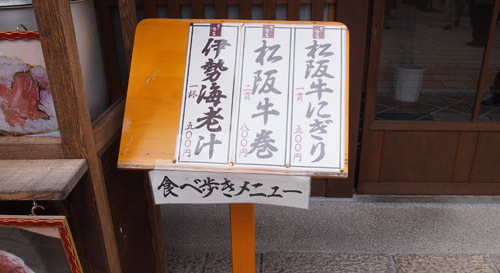 松阪牛にぎり
一貫
五〇〇円
松阪牛巻
二貫
八〇〇円
伊勢海老汁
一杯
五〇〇円
食べ歩きメニュー